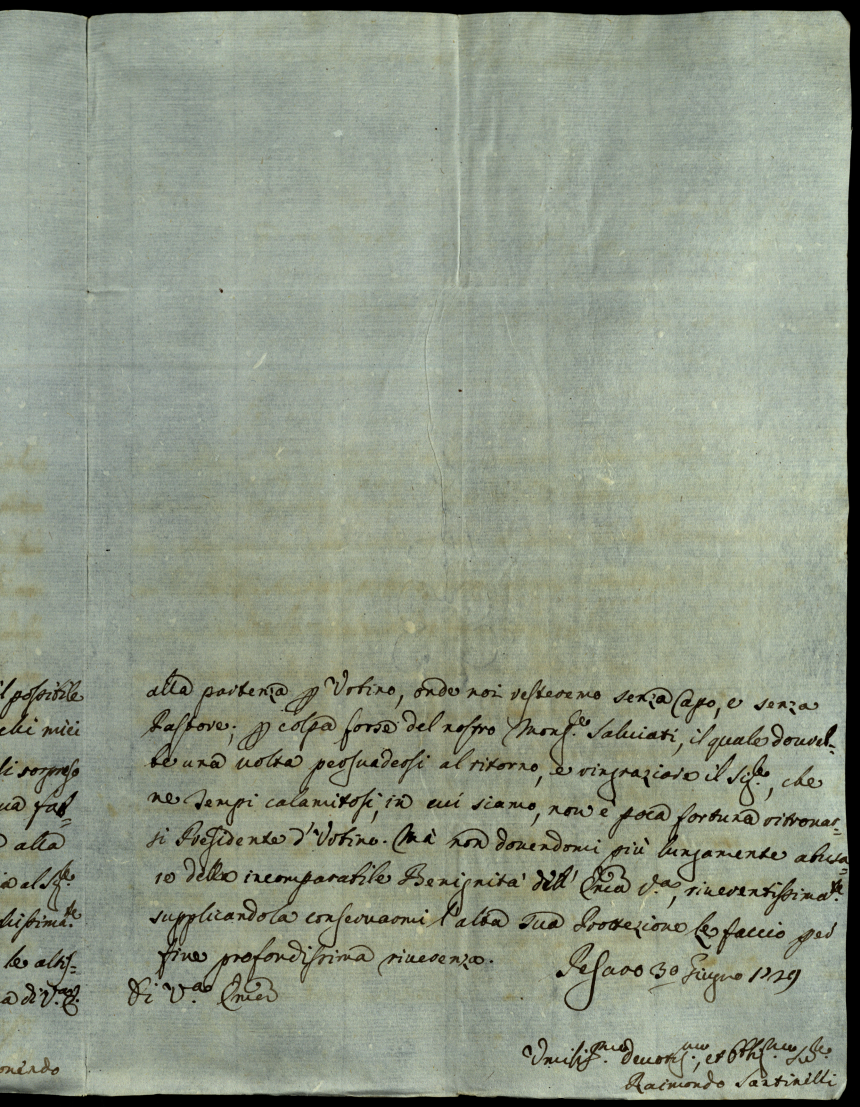 il possibile
chi miei
di sorpreso
ua fat=
alla
al Sig.re
lissima.te
le altis=
a di V.a E.
onendo
alla partenza p Urbino, onde noi resteremo senza Capo, e senza
Pastore; p colpa forse del nostro Mons.re Salviati, il quale dovreb=
be una volta persuadersi al ritorno, e ringraziare il Sig.re, che
ne tempi calamitosi, in cui siamo, non è poca fortuna ritrovar=
si Presidente d'Urbino. Mà non dovendomi più lungamente abusa=
re della incomparabile Benignità dell' Em̃a V.a, riverentissima.te
supplicandola conservarmi l'alta Sua Protezione le faccio per
fine profondissima riverenza.
Di V.a Em̃a
Pesaro 30 Giugno 1729
Umiliss.mo Devotiss.mo, et Obblig.mo Se.re
Raimondo Santinelli